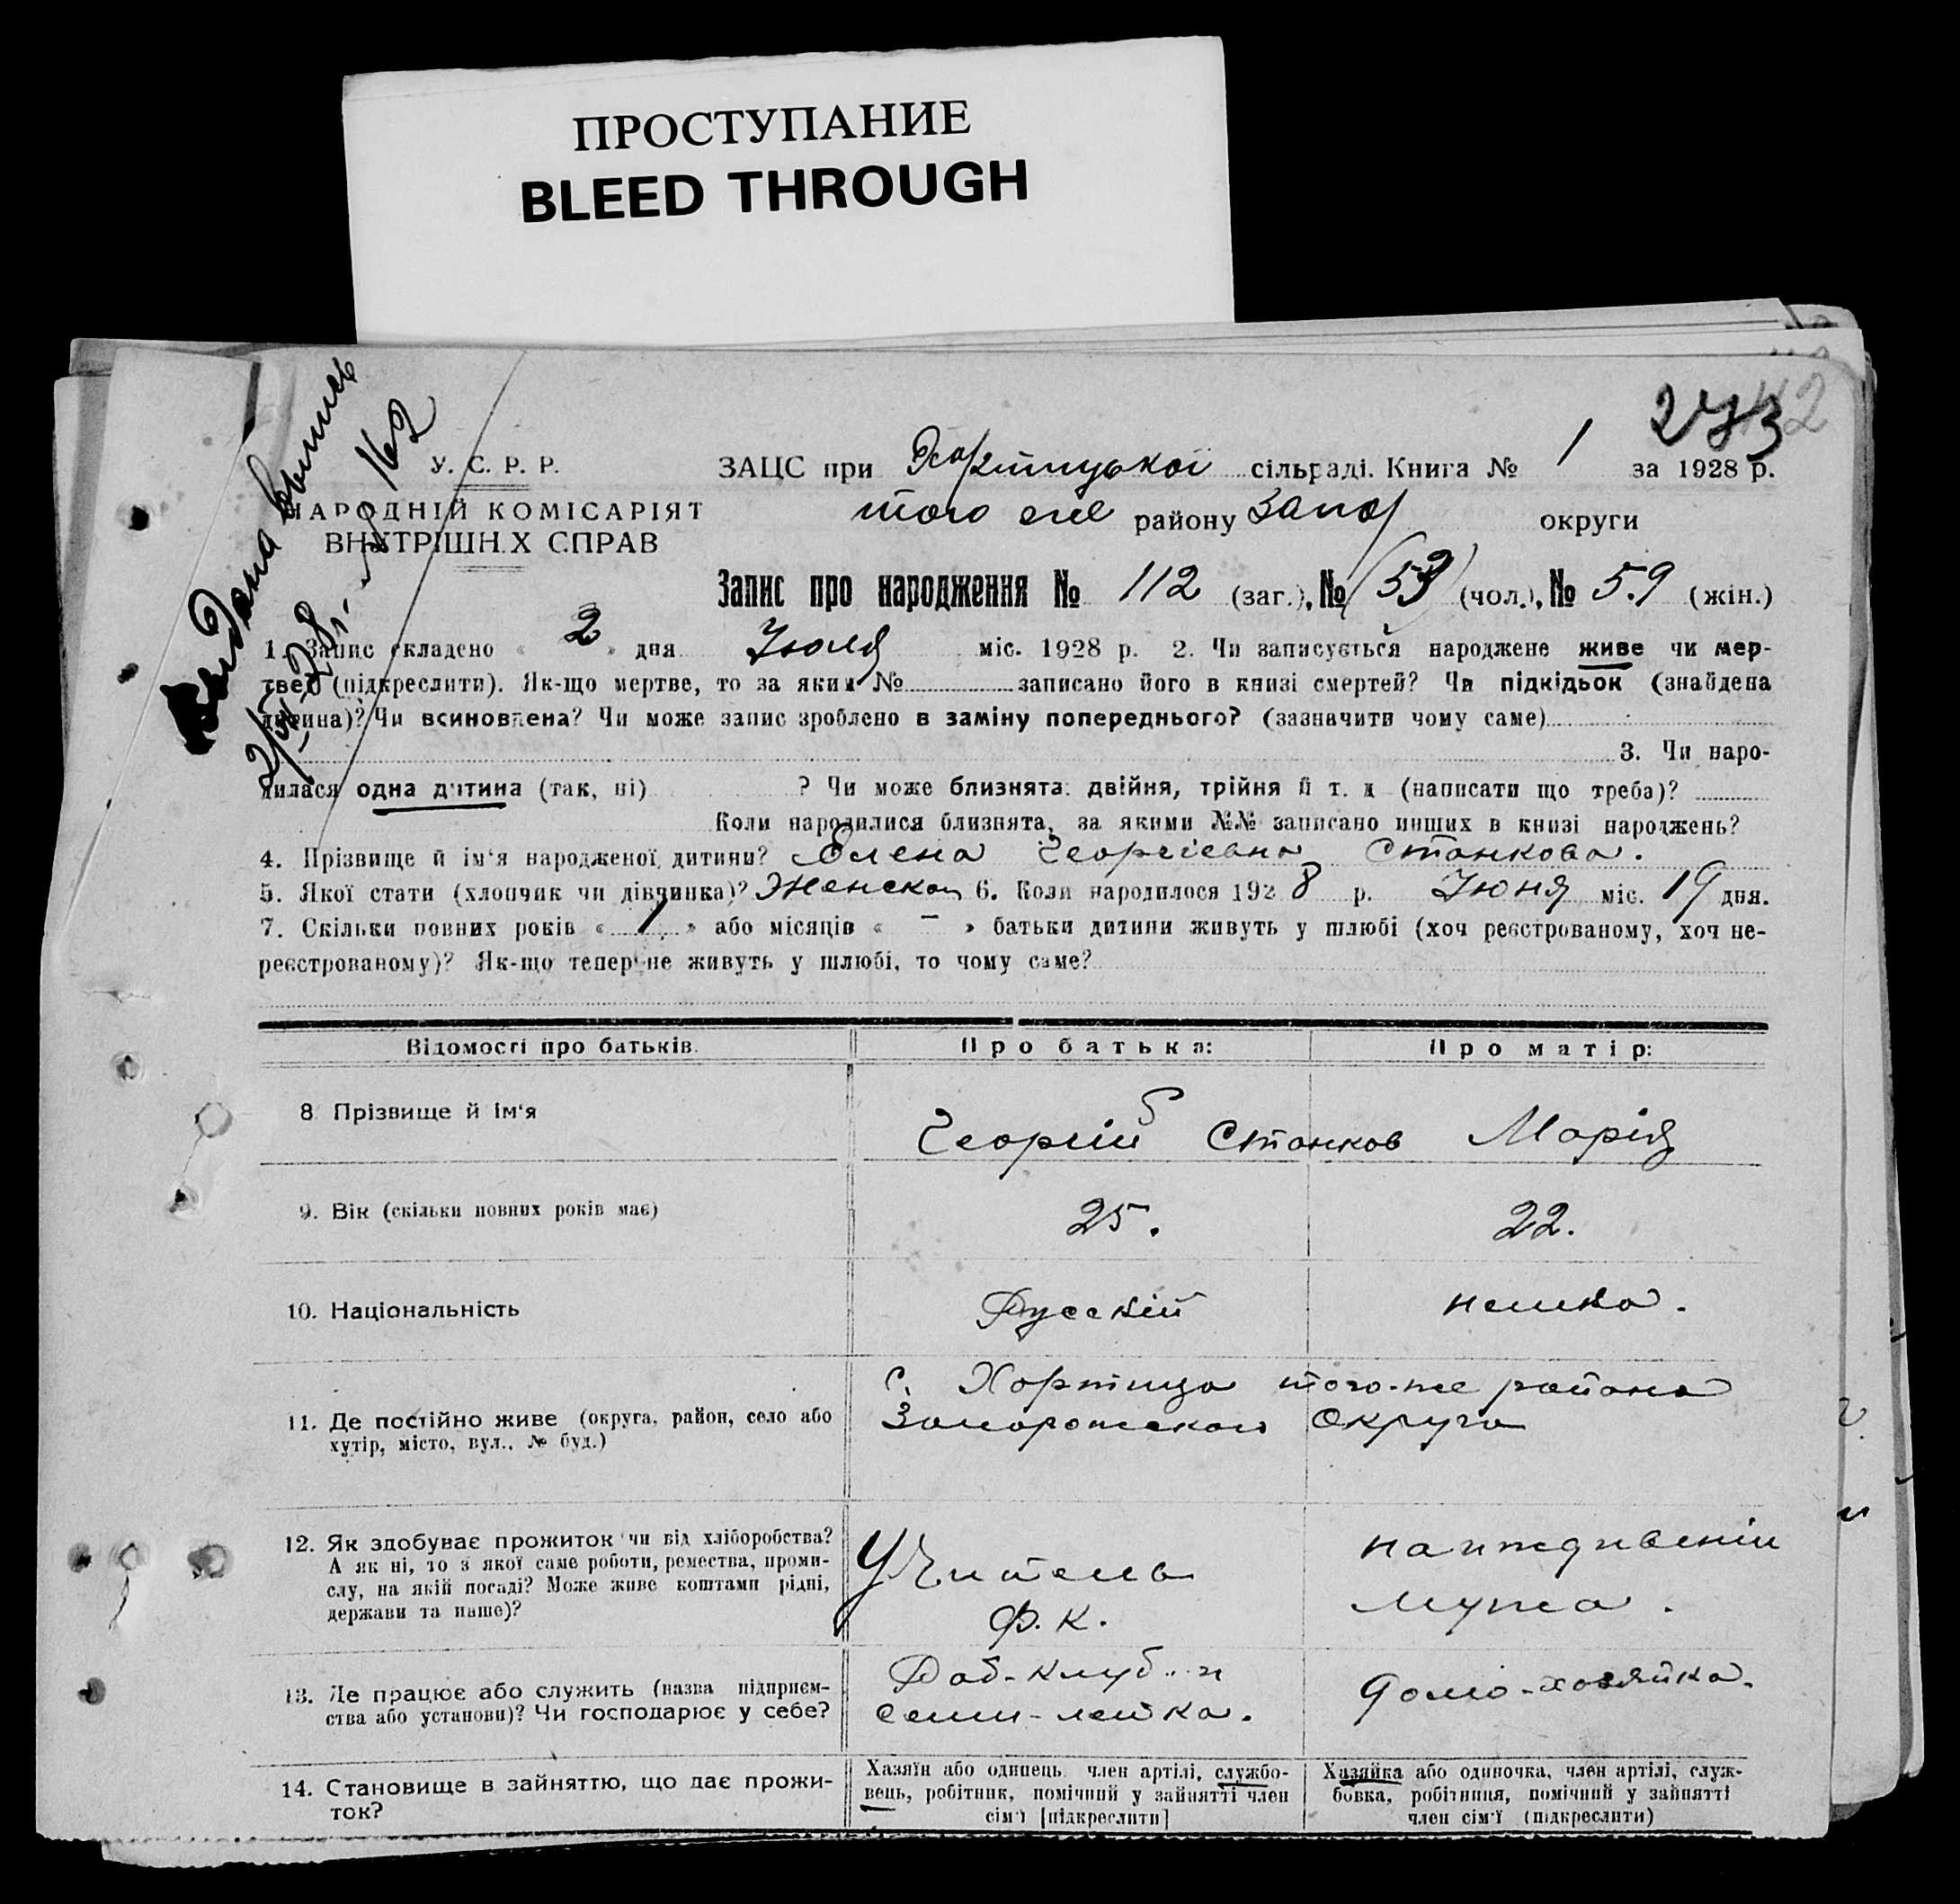 ПРОСТУПАНИЕ
BLEED THROUGH
273
Выдана выпись
2/VII-28 г. № 162
У. С. Р. Р.
НАРОДНІЙ КОМІСАРІЯТ
ВНУТРІШНІХ СПРАВ
ЗАЦС при Хортицької сільраді. Книга № 1 за 1928 р.
того же району Запор округи
Запис про народження № 112 (заг.), № (53) (чол.), № 59 (жін.)
1. Запис складено « 2 » дня Июля міс. 1928 р. 2. Чи записується народжене живе чи мер-
тве (підкреслити). Як-що мертве, то за яким № записано його в книзі смертей? Чи підкідьок (знайдена
дитина)? Чи всиновлена? Чи може запис зроблено в заміну попереднього? (зазначити чому саме)
3. Чи наро-
дилася одна дитина (так, ні) ? Чи може близнята: двійня, трійня й т. д (написати що треба)?
Коли народилися близнята, за якими №№ записано инших в книзі народжень?
4. Прізвище й ім'я народженої дитини? Елена Георгіевна Станкова.
5. Якої стати (хлопчик чи дівчинка)? Женской 6. Коли народилося 1928 р. Июня міс. 19 дня.
7. Скільки повних років « 1 » або місяців « – » батьки дитини живуть у шлюбі (хоч реєстрованому, хоч не-
реєстрованому)? Як-що тепер не живуть у шлюбі, то чому саме?
Відомості про батьків. Про батька: Про матір:
8 Прізвище й ім'я Георгій Станков Марія
9. Вік (скільки повних років має) 25. 22.
10. Національність Русскій немка.
11. Де постійно живе (округа, район, село або
хутір, місто, вул., № буд.)
с. Хортица того-же района
Запорожского Округа
12. Як здобуває прожиток чи від хліборобства?
А як ні, то з якої саме роботи, ремества, проми-
слу, на якій посаді? Може живе коштами рідні,
держави та инше)?
Учитель
Ф. К.
на иждивеніи
мужа.
13. Де працює або служить (назва підприєм-
ства або установи)? Чи господарює у себе?
Раб-клуб и
семи-летка.
домо-хозяйка.
14. Становище в зайняттю, що дає прожи-
ток?
Хазяїн або одинець член артілі, службо-
вець, робітник, помічний у зайнятті член
сім'ї [підкреслити]
Хазяйка або одиночка, член артілі, служ-
бовка, робітниця, помічний у зайнятті
член сім'ї (підкреслити)